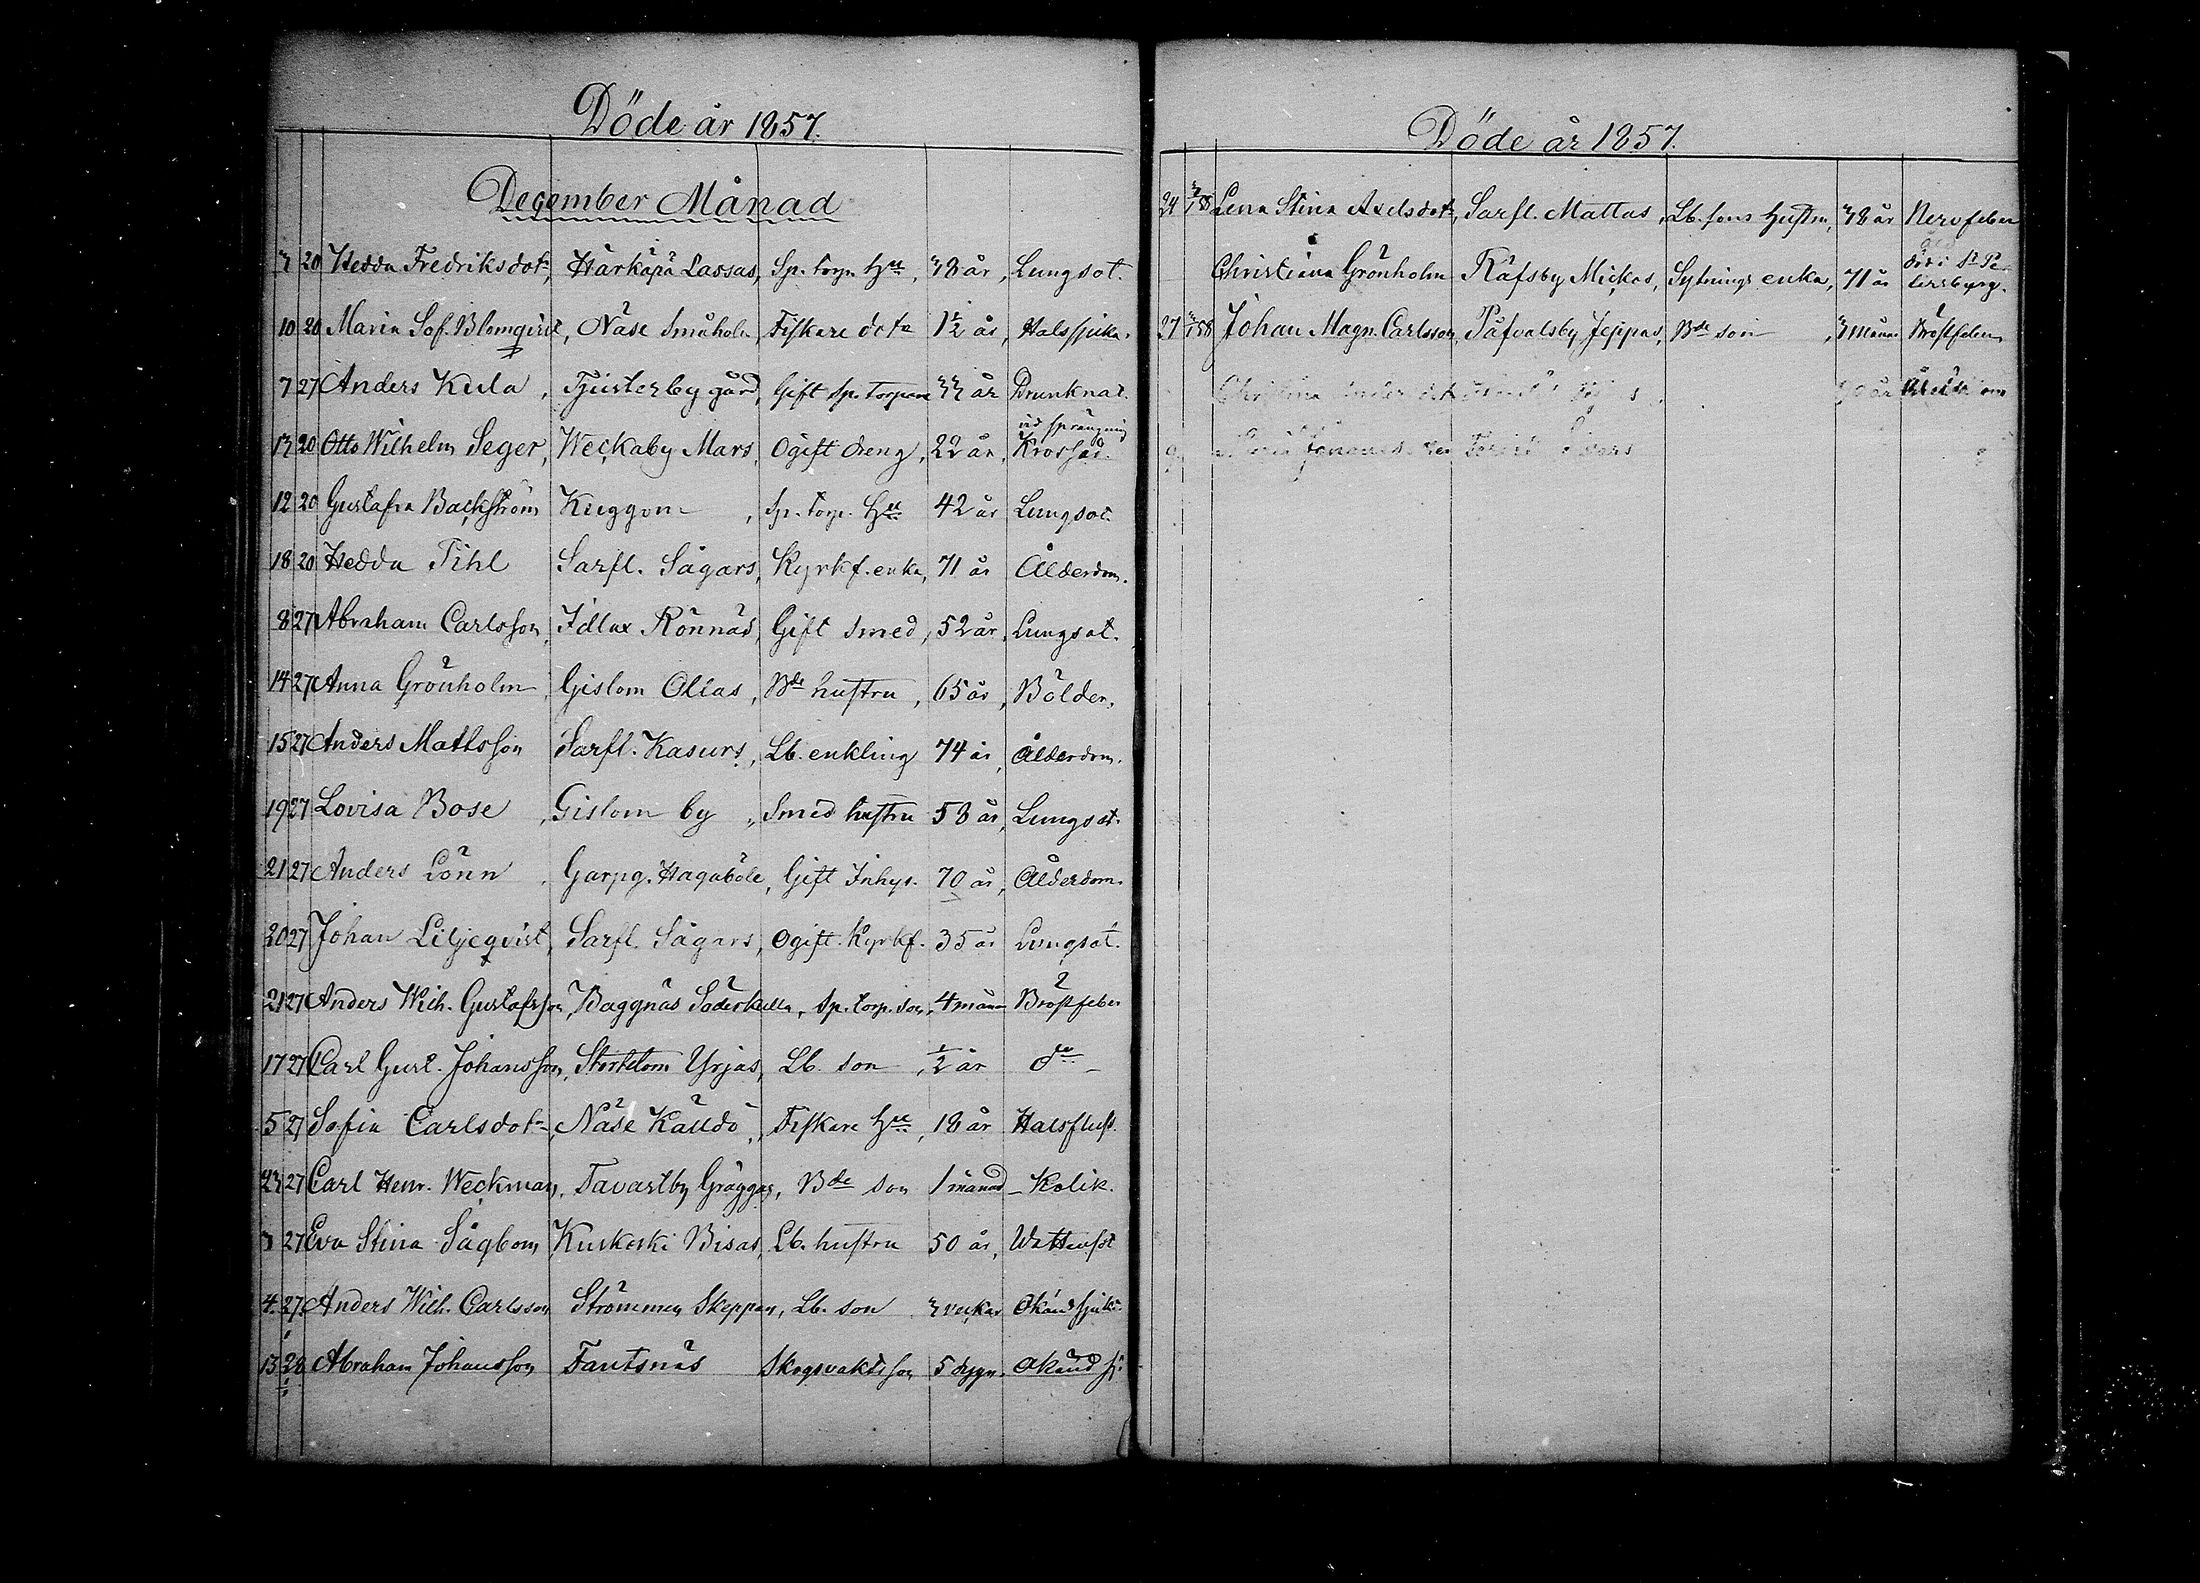 Döde år 1857.
December Månad
3 20 Hedda Fredriksdotr, Härkäpä Lassas, Sp. torp. Hu, 38 år, Lungsot.
10 20 Maria Sof. Blomqvist, Näse Småholm Fiskare dotr 1½ år, Halssjuka.
7 27 Anders Kula, Tjusterby gård, Gift Sp. Torpare 33 år Drunknat.
vid sprängning
13 20 Otto Wilhelm Seger, Weckaby Mars, Ogift dreng, 22 år, Krossad.
12 20 Gustafva Backström Kuggom, Sp. torp. Hu 42 år Lungsot.
18 20 Hedda Pihl Sarfl. Sågars, Kyrkf. enka, 71 år Ålderdom.
8 27 Abraham Carlsson, Idlax Rönnäs, Gift Smed, 52 år, Lungsot.
14 27 Anna Grönholm, Gislom Ollas, Bde hustru, 65 år, Bölder.
15 27 Anders Mattsson Sarfl. Kasurs, Lb. enkling 74 år, Ålderdom.
19 27 Lovisa Bose, Gislom by, Smed hustru 58 år, Lungsot.
21 27 Anders Lönn, Garpg. Hagaböle, Gift Inhys. 70 år, Ålderdom.
20 27 Johan Liljeqvist, Sarfl. Sågars, Ogift Kyrkf. 35 år Lungsot.
21 27 Anders Wilh. Gustafsson, Baggnäs Söderkulla, Sp. torp. son, 4 mån Bröstfeber
17 27 Carl Gust. Johansson, Stortlom Yrjas, Lb. son, ½ år do
5 27 Sofia Carlsdotr, Näse Källdö, Fiskare Hu, 18 år Halsflus.
23 27 Carl Henr. Weckman, Tavastby Gräggas, Bde son 1 månad Kolik.
3 27 Eva Stina Sågbom, Kuskoski Bisas, Lb. hustru 50 år, Wattusot
4. 27. Anders Wilh. Carlsson Strömmen Skeppar, Lb. son 3 veckor Okänd sjukd.
13 28 Abraham Johansson Tantsnäs Skogsvakts son 5 dygn. Okänd sj.
Döde år 1857.
24 3/1 58 Lena Stina Axelsdotr, Sarfl. Mattas, Lb. sons hustru, 38 år Nervfeber
Christina Grönholm Räfsby Mickas, Sytnings enka, 71 år död i St Petersburg.
27 3/1 58 Johan Magn. Carlsson, Påfvalsby Jeppas, Bde son, 3 mån Bröstfeber
Christina